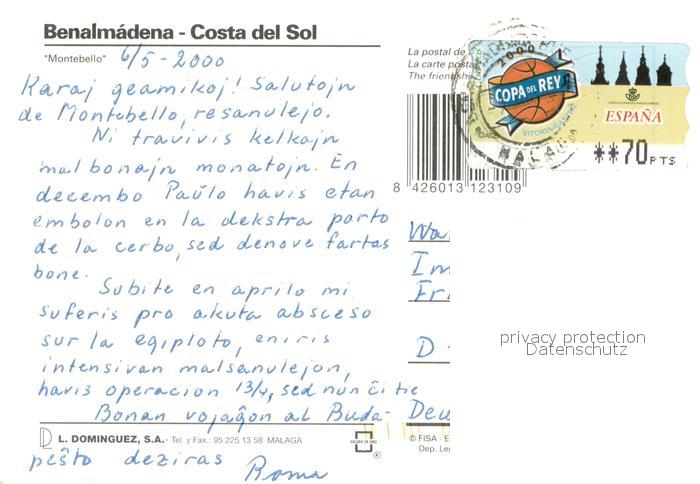 Benalmádena - Costa del Sol
"Montebello" 6/5-2000
Karaj geamikoj! Salutojn
de Montebello, resanulejo.
Ni travivis kelkajn
malbonajn monatojn. En
decembo Paŭlo havis etan
embolon en la dekstra parto
de la cerbo, sed denove fartas
bone.
Subite en aprilo mi
suferis pro akuta absceso
sur la egiploto, eniris
intensivan malsanulejon,
havis operacion 13/4, sed nun ĉi tie
Bonan vojaĝon al Buda-
L. DOMINGUEZ, S.A.- Tel. y Fax.: 95 225 13 58 MALAGA
peŝto deziras Roma
La postal de
La carte posta
The friendsh
8 426013 123109
2000
COPA DEL REY
VITORIA
MALAGA
ESPAÑA
**70 PTS
Wa
Im
Fri
D
Deu
© FISA - E
Dep. Leg
privacy protection
Datenschutz